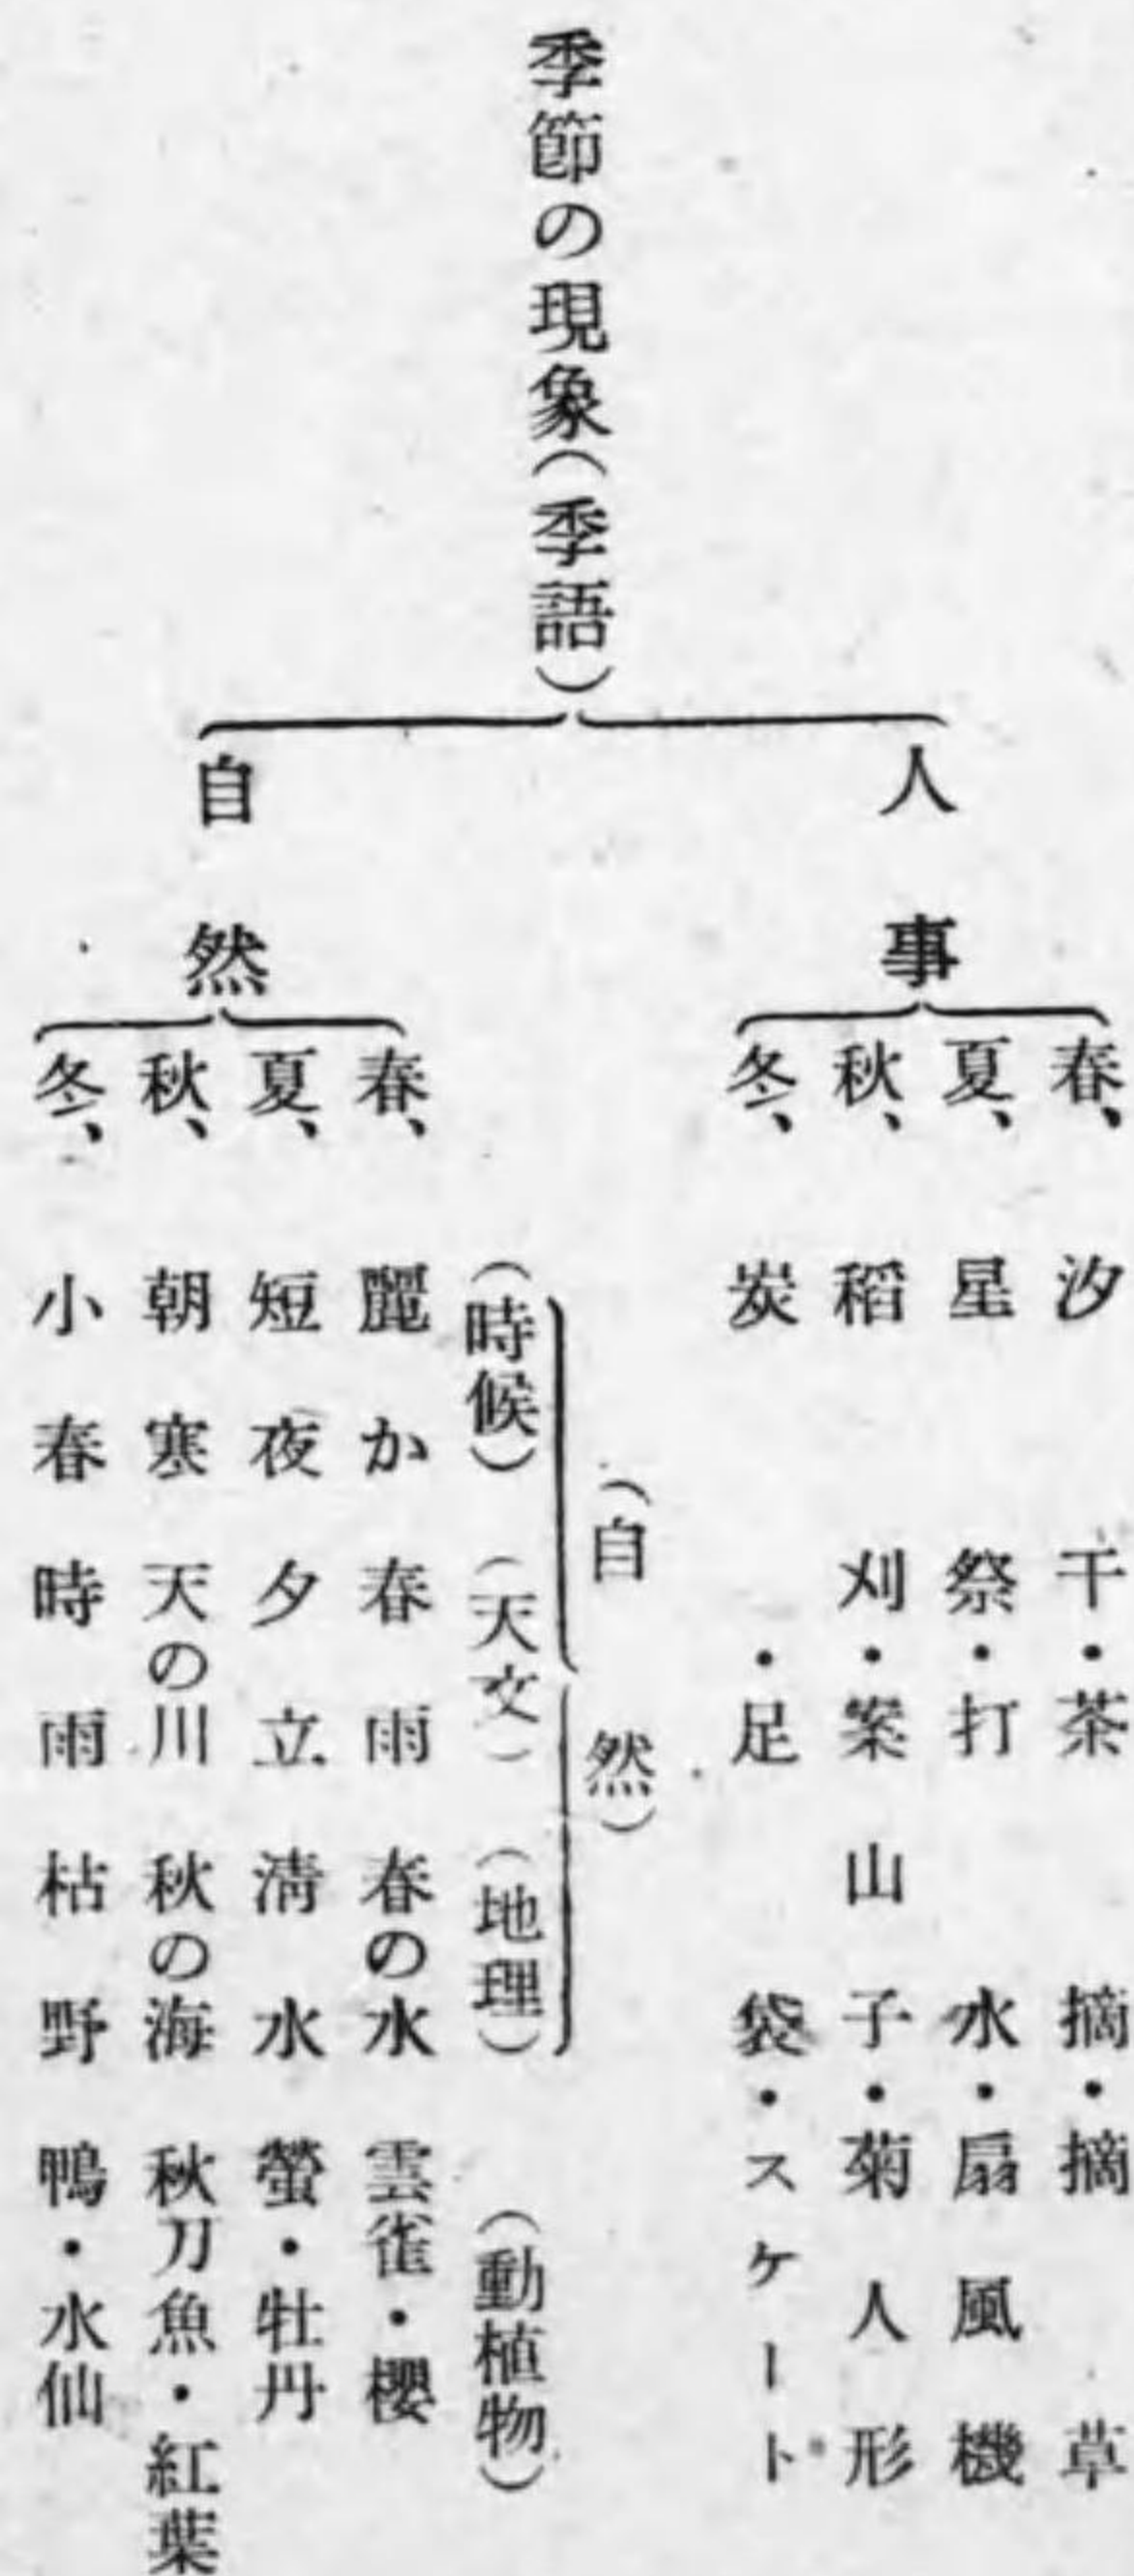 季節の現象(季語)
人事
春、汐干・茶摘・摘草
夏、星祭・打水・扇風機
秋、稻刈・案山子・菊人形
冬、炭・足袋・スケート
(自然)
(時候)(天文)(地理)(動植物)
自然
春、麗か 春雨 春の水 雲雀・櫻
夏、短夜 夕立 淸水 螢・牡丹
秋、朝寒 天の川 秋の海 秋刀魚・紅葉
冬、小春 時雨 枯野 鴨・水仙